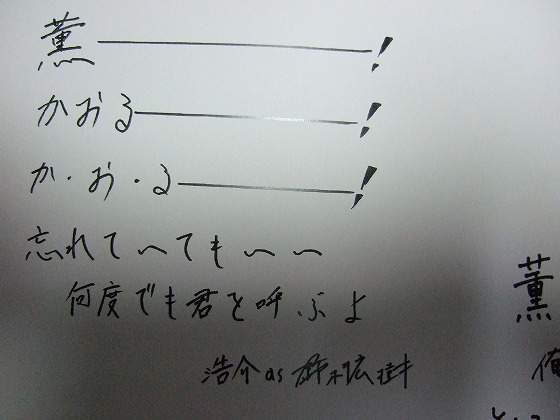 薫――――――！
かおる――――――！
か・お・る――――――！
忘れて〜ても〜〜
何度でも君を呼ぶよ
浩介as 鈴木拡樹
薫
俺